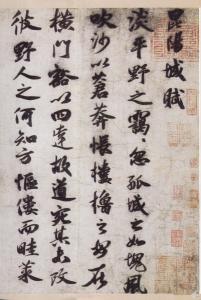 昆陽城賦
淡平野之靄〻忽孤城之如塊風
吹沙以蒼莽悵樓櫓之安在
橫門豁以四達故道宛其未改
彼野人之何知方傴僂而畦菜